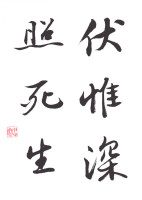 伏惟深
照死生